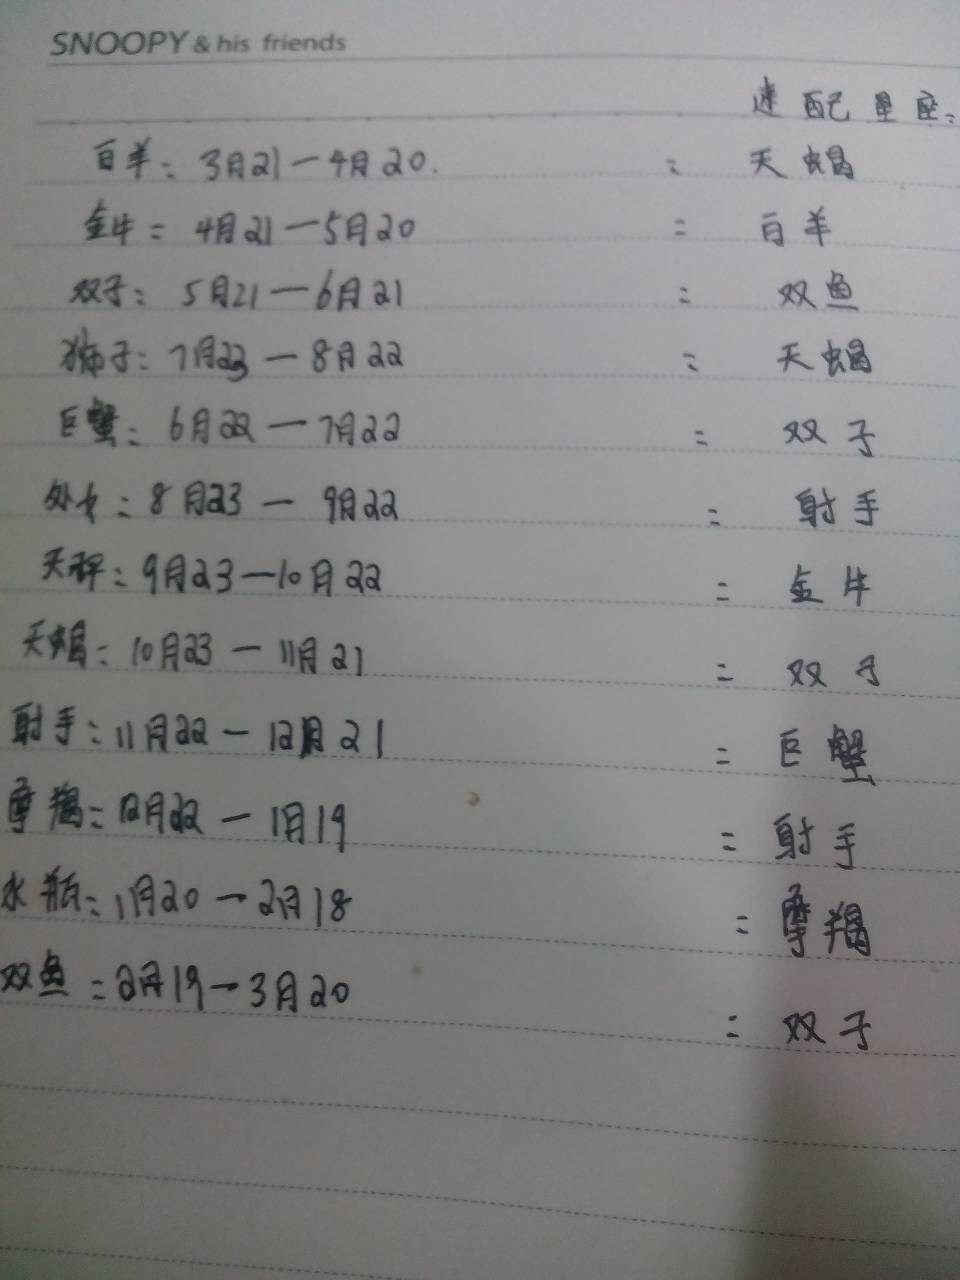 SNOOPY & his friends
速配星座:
白羊: 3月21—4月20. : 天蝎
金牛: 4月21—5月20 : 白羊
双子: 5月21—6月21 : 双鱼
狮子: 7月23—8月22 : 天蝎
巨蟹: 6月22—7月22 : 双子
处女: 8月23—9月22 : 射手
天秤: 9月23—10月22 : 金牛
天蝎: 10月23—11月21 : 双子
射手: 11月22—12月21 : 巨蟹
摩羯: 12月22—1月19 : 射手
水瓶: 1月20—2月18 : 摩羯
双鱼: 2月19—3月20 : 双子